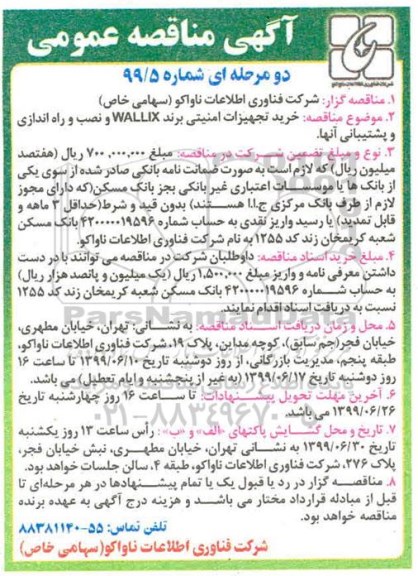 آگهی مناقصه عمومی
شرکت فناوری اطلاعات ناواکو
دو مرحله ای شماره ۹۹/۵
۱. مناقصه گزار: شرکت فناوری اطلاعات ناواکو (سهامی خاص)
۲. موضوع مناقصه: خرید تجهیزات امنیتی برند WALLIX و نصب و راه اندازی
و پشتیبانی آنها.
۳. نوع و مبلغ تضمین شرکت در مناقصه: مبلغ ۷۰۰,۰۰۰,۰۰۰ ریال (هفتصد
میلیون ریال) که لازم است به صورت ضمانت نامه بانکی صادر شده از سوی یکی
از بانک ها یا موسسات اعتباری غیر بانکی بجز بانک مسکن(که دارای مجوز
لازم از طرف بانک مرکزی ج.ا.ا هستند) بدون قید و شرط(حداقل ۳ ماهه و
قابل تمدید) یا رسید واریز نقدی به حساب شماره ۴۲۰۰۰۰۰۱۹۵۹۶ بانک مسکن
شعبه کریمخان زند کد ۱۲۵۵ به نام شرکت فناوری اطلاعات ناواکو.
۴. مبلغ خرید اسناد مناقصه: داوطلبان شرکت در مناقصه می توانند با در دست
داشتن معرفی نامه و واریز مبلغ ۱,۵۰۰,۰۰۰ ریال (یک میلیون و پانصد هزار ریال)
به حساب شماره ۴۲۰۰۰۰۰۱۹۵۹۶ بانک مسکن شعبه کریمخان زند کد ۱۲۵۵
نسبت به دریافت اسناد اقدام نمایند.
ParsNamadData
۵. محل و زمان دریافت اسناد مناقصه: به نشانی: تهران، خیابان مطهری،
خیابان فجر(جم سابق)، کوچه مداین، پلاک ۱۹، شرکت فناوری اطلاعات ناواکو،
طبقه پنجم، مدیریت بازرگانی، از روز دوشنبه تاریخ ۱۳۹۹/۰۶/۱۰ تا ساعت ۱۶
روز دوشنبه تاریخ ۱۳۹۹/۰۶/۱۷ (به غیر از پنجشنبه و ایام تعطیل) می باشد.
۶. آخرین مهلت تحویل پیشنهادات: تا ساعت ۱۶ روز چهارشنبه تاریخ
۱۳۹۹/۰۶/۲۶ می باشد.
۰۲۱-۸۸۳۴۹۶۷۰
۷. تاریخ و محل گشایش پاکتهای «الف» و «ب»: رأس ساعت ۱۳ روز یکشنبه
تاریخ ۱۳۹۹/۰۶/۳۰ به نشانی تهران، خیابان مطهری، نبش خیابان فجر،
پلاک ۲۷۶، شرکت فناوری اطلاعات ناواکو، طبقه ۴، سالن جلسات خواهد بود.
۸. مناقصه گزار در رد یا قبول یک یا تمام پیشنهادها در هر مرحله‌ای تا
قبل از مبادله قرارداد مختار می باشد و هزینه درج آگهی به عهده برنده
مناقصه خواهد بود.
تلفن تماس: ۵۵-۸۸۳۸۱۱۴۰
شرکت فناوری اطلاعات ناواکو(سهامی خاص)